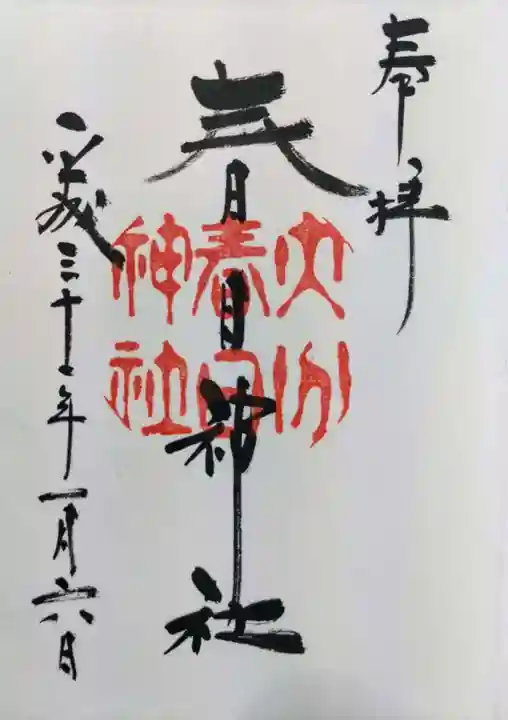 奉拝
春日神社
大分
春日
神社
平成三十年一月六日